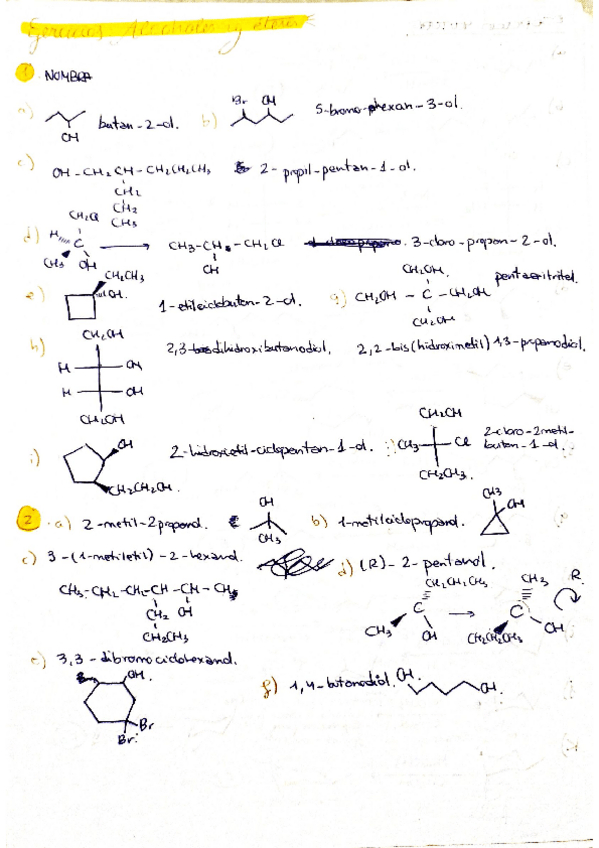 Alcoholes y éteres
1. NOMBRA
a) OH butan-2-ol. b) Br OH 5-bromo-hexan-3-ol.
c) OH-CH2CH-CH2CH2CH3 2-propil-pentan-1-ol.
CH2
CH2
CH3
d) CH2Cl H C CH3 OH CH3-CH-CH2Cl OH 3-cloro-propan-2-ol.
e) CH2CH3 OH. 1-etilciclobutan-2-ol. g) CH2OH. CH2OH - C - CH2OH CH2OH pentaeritritol.
h) CH2OH 2,3-dihidroxibutanodiol. 2,2-bis(hidroximetil)1,3-propanodiol.
H OH
H OH
CH2OH
i) OH CH2CH2OH. 2-hidroxietil-ciclopentan-1-ol. CH2OH CH3 Cl CH2CH3. 2-cloro-2metil-
butan-1-ol.
2. a) 2-metil-2propanol. OH CH3 b) 1-metilciclopropanol. CH3 OH
c) 3-(1-metiletil)-2-hexanol. d) (R)-2-pentanol.
CH3-CH2-CH2-CH-CH-CH3 CH2 OH CH2CH3
CH2CH2CH3 C CH3 OH CH3 C CH2CH2CH3 OH R
e) 3,3-dibromociclohexanol. OH. Br Br
f) 1,4-butanodiol. OH. OH.